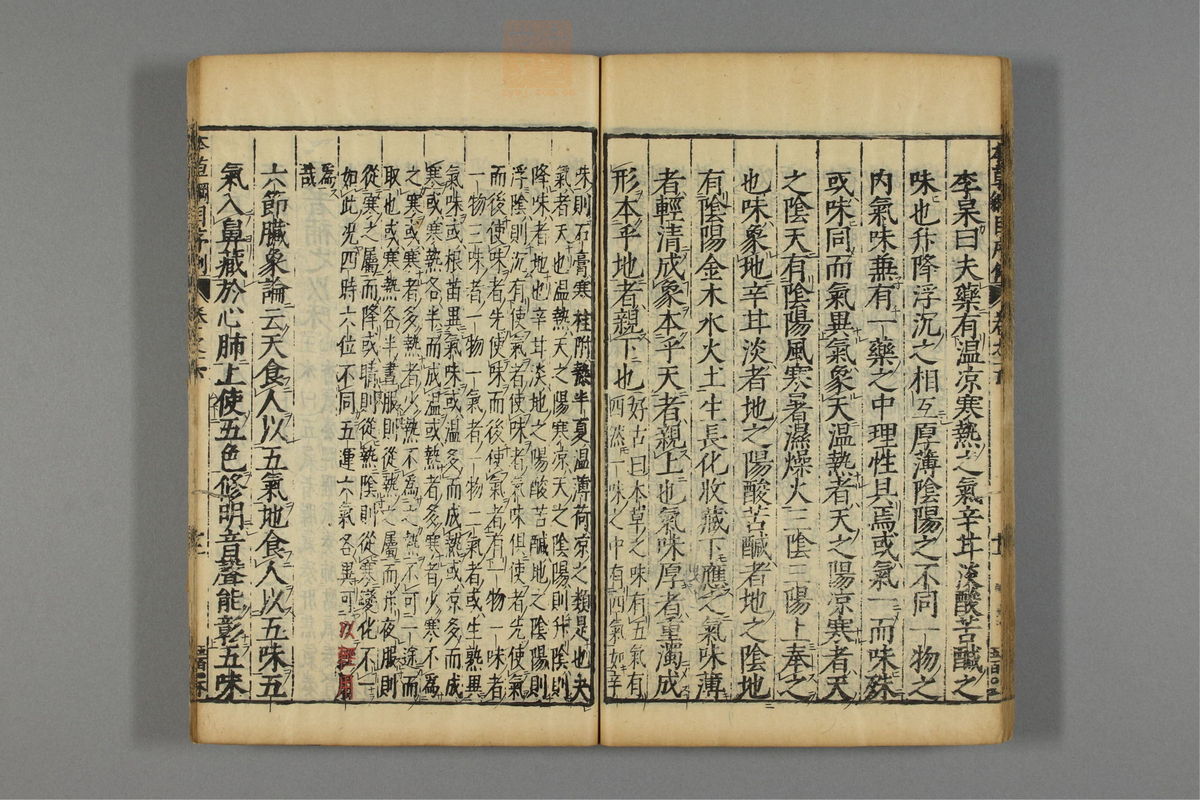 李杲曰夫藥有温凉寒熱之氣辛甘淡酸苦鹹之
味也升降浮沉之相互厚薄陰陽之不同一物之
内氣味兼有一藥之中理性具焉或氣一而味殊
或味同而氣異氣象天温熱者天之陽凉寒者天
之陰天有陰陽風寒暑濕燥火三陰三陽上奉之
也味象地辛甘淡者地之陽酸苦鹹者地之陰地
有陰陽金木水火土生長化收藏下應之氣味薄
者輕清成象本乎天者親上也氣味厚者重濁成
形本乎地者親下也
好古曰本草之味有五氣有
四然一味之中有四氣如辛
味則石膏寒桂附熱半夏温薄荷凉之類是也夫
氣者天也温熱天之陽寒凉天之陰陽則升陰則
降味者地也辛甘淡地之陽酸苦鹹地之陰陽則
浮陰則沉有使氣者使味者氣味俱使者先使氣
而後使味者先使味而後使氣者有一物一味者
一物三味者一物一氣者一物二氣者或生熟異
氣味或根苗異氣味或温多而成熱或凉多而成
寒或寒熱各半而成温或熱者多寒者少寒不爲
之寒或寒者多熱者少熱不爲之熱不可一途而
取也或寒熱各半晝服則從熱之屬而升夜服則
從寒之屬而降或晴則從熱陰則從寒變化不一
如此况四時六位不同五運六氣各異可以輕用
爲哉
六節臟象論云天食人以五氣地食人以五味五
氣入鼻藏於心肺上使五色修明音聲能彰五味